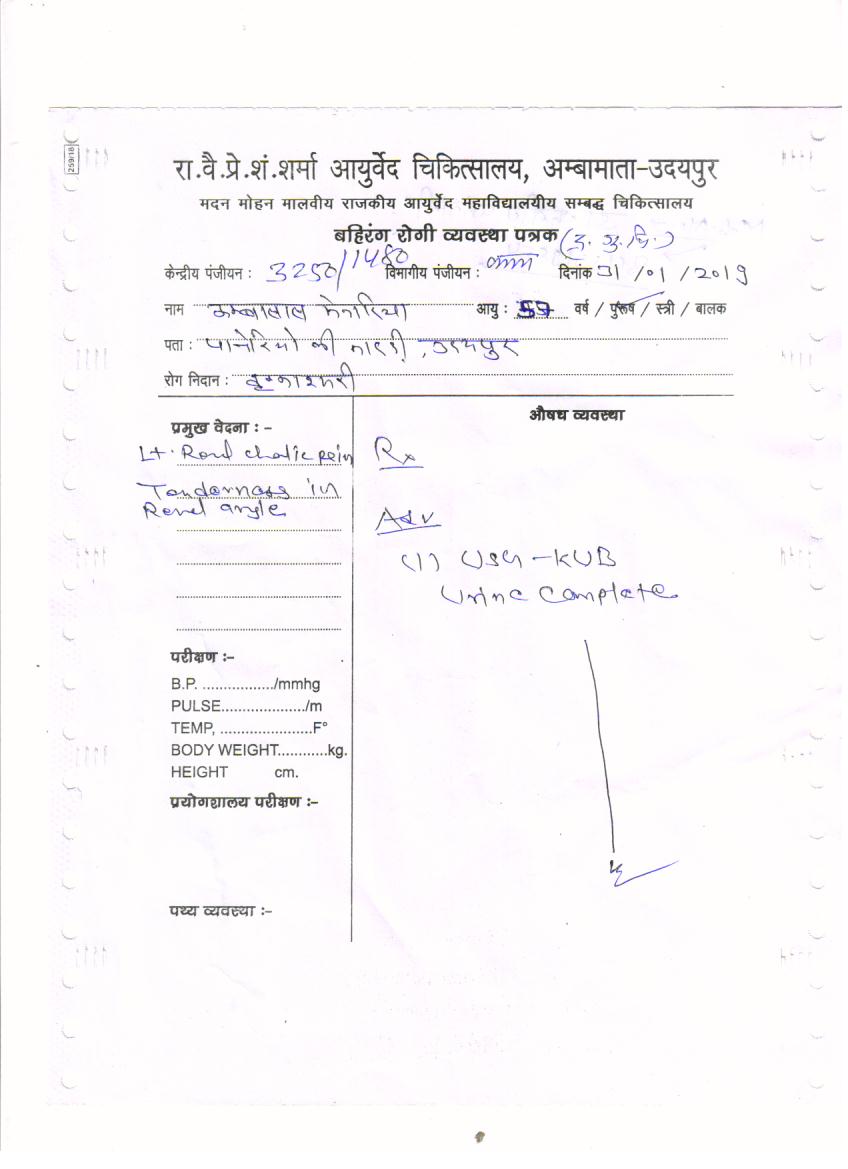 259/18
रा.वै.प्रे.शं.शर्मा आयुर्वेद चिकित्सालय, अम्बामाता-उदयपुर
मदन मोहन मालवीय राजकीय आयुर्वेद महाविद्यालयीय सम्बद्ध चिकित्सालय
बहिरंग रोगी व्यवस्था पत्रक
केन्द्रीय पंजीयन : 3250/11480 विभागीय पंजीयन : दिनांक 31/01/2019
नाम मेनारिया आयु : 59 वर्ष / पुरूष / स्त्री / बालक
पता : पानेरियो की मादडी, उदयपुर
रोग निदान : वृक्काश्मरी
प्रमुख वेदना :-
Lt. Renal cholic pein
Tenderness in
Renel angle
औषध व्यवस्था
Rx
Adv
(1) USG-KUB
Urine Complete
परीक्षण :-
B.P. ................./mmhg
PULSE...................../m
TEMP, .......................F°
BODY WEIGHT............kg.
HEIGHT cm.
प्रयोगशालय परीक्षण :-
पथ्य व्यवस्था :-